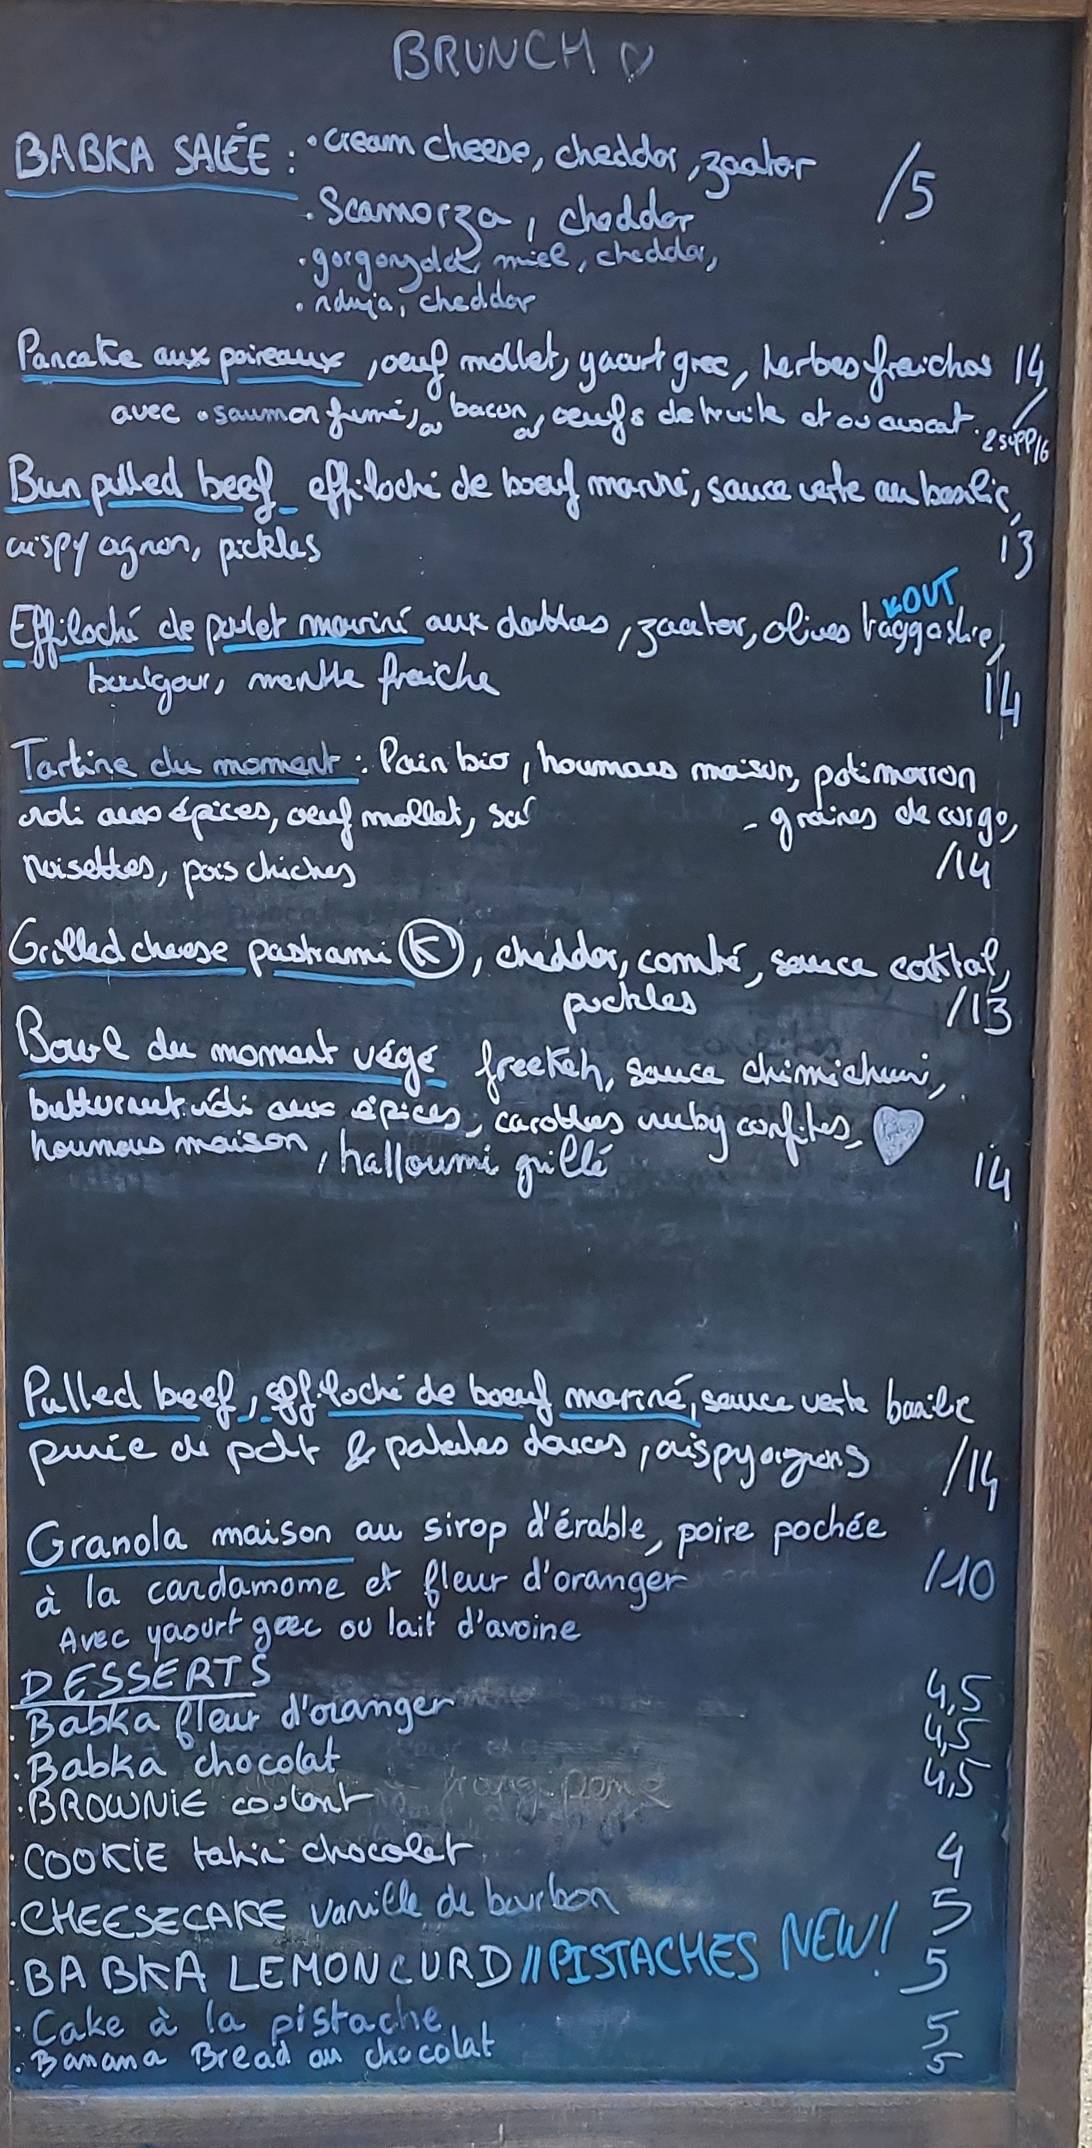 BRUNCH
BABKA SALÉE : • cream cheese, cheddar, zaatar /5
• Scamorza, cheddar
• gorgonzola, miel, cheddar,
• nduja, cheddar
Pancake aux poireaux, oeuf mollet, yaourt grec, herbes fraiches 14
avec • saumon fumé, ou bacon, ou oeufs de truite et ou avocat. 2 supp/16
Bun pulled beef - effiloché de boeuf mariné, sauce verte au basilic,
crispy agnon, pickles 13
KOUT
Effiloché de poulet mariné aux dattes, zaatar, olives taggashe,
boulgour, menthe fraiche 14
Tartine du moment : Pain bio, houmous maison, potimarron
roti aux épices, oeuf mollet, - graines de courge,
noisettes, pois chiches /14
Grilled cheese pastrami K, cheddar, comté, sauce cocktail,
pickles /13
Bowl du moment végé freekeh, sauce chimichuri,
butternut rôti aux épices, carottes ruby confites,
houmous maison, halloumi grillé 14
Pulled beef, effiloché de boeuf mariné, sauce verte basilic
purée de pdt & patates douces, crispy oignons /14
Granola maison au sirop d'érable, poire pochée
à la cardamome et fleur d'oranger /10
Avec yaourt grec ou lait d'avoine
DESSERTS
• Babka fleur d'oranger 4,5
• Babka chocolat 4,5
• BROWNIE coulant 4,5
• COOKIE tahini chocolat 4
• CHEESECAKE vanille de bourbon 5
• BABKA LEMON CURD // PISTACHES NEW! 5
• Cake à la pistache 5
• Banana Bread au chocolat 5